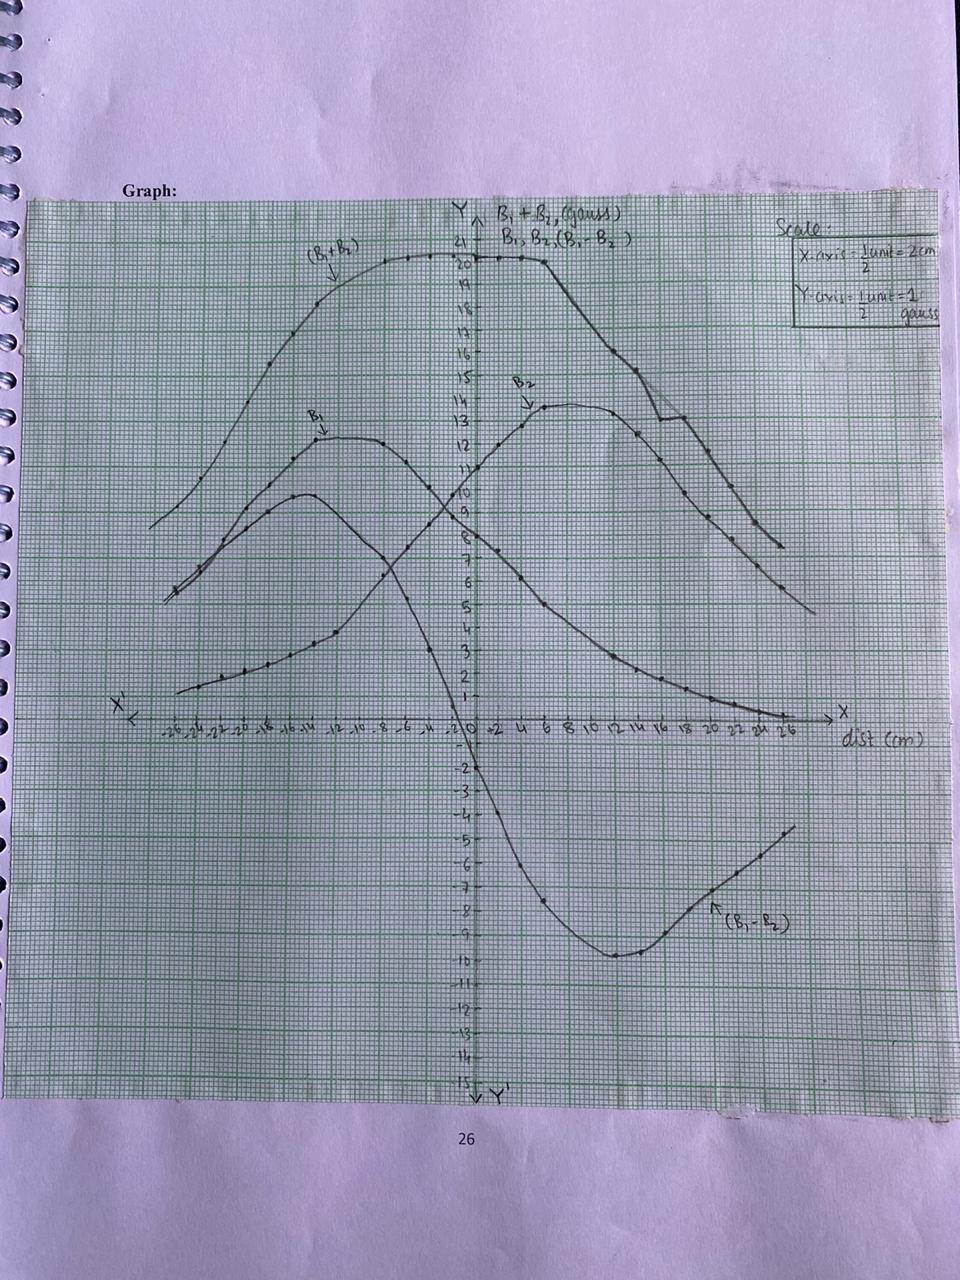 Graph:
Y B₁ + B₂, (gauss)
B₁, B₂, (B₁ - B₂)
Scale:
X-axis = 1/2 unit = 2cm
Y-axis = 1/2 unit = 1 gauss
(B₁+B₂)
21
20
19
18
17
16
15
14
13
12
11
10
9
8
7
6
5
4
3
2
1
B₂
B₁
X' X
-26 -24 -22 -20 -18 -16 -14 -12 -10 -8 -6 -4 -2 0 +2 4 6 8 10 12 14 16 18 20 22 24 26
dist (cm)
-2
-3
-4
-5
-6
-7
-8
-9
-10
-11
-12
-13
-14
-15
(B₁-B₂)
Y'
26